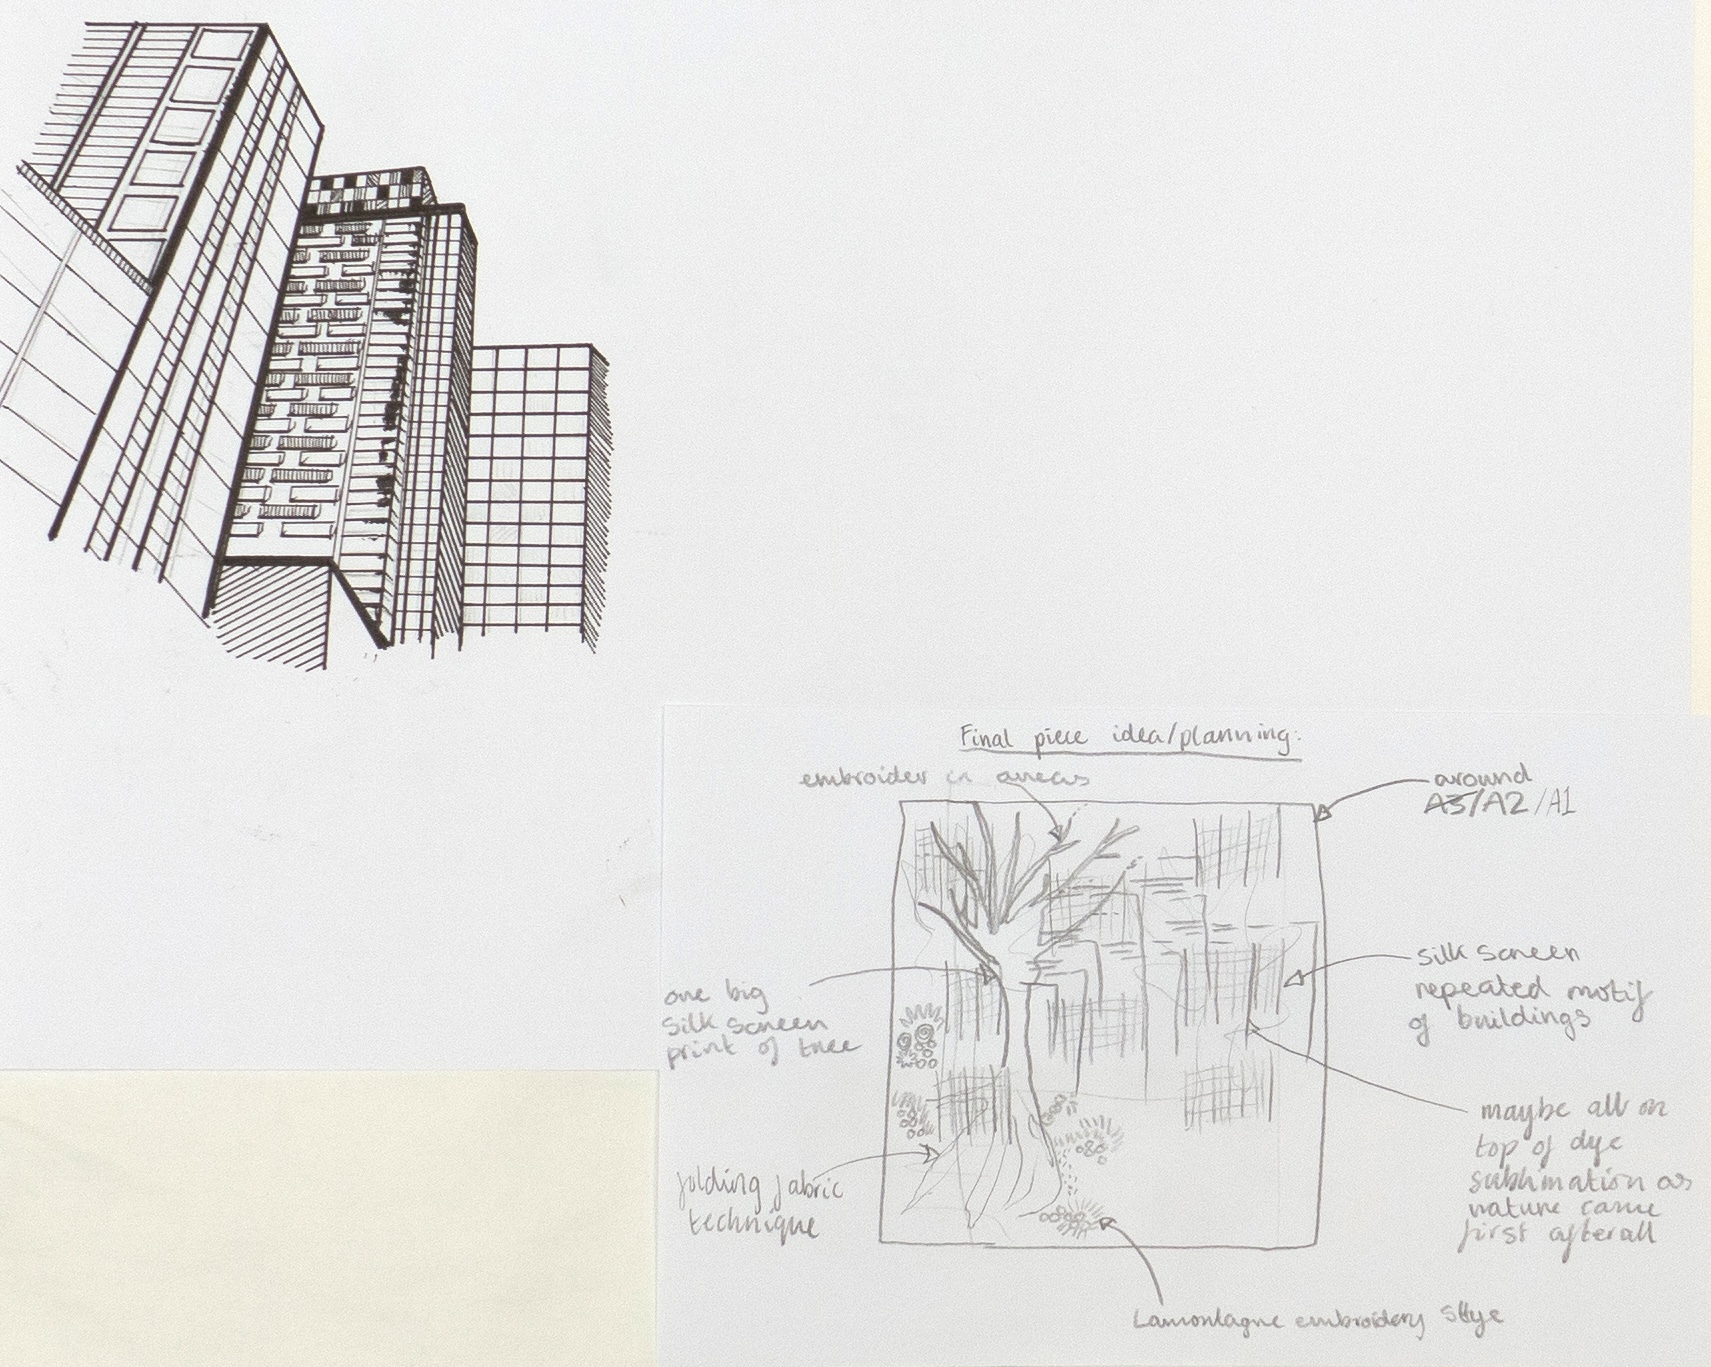 Final piece idea/planning:
embroider in areas
around
A3/A2/A1
one big
silk screen
print of tree
silk screen
repeated motif
of buildings
maybe all on
top of dye
sublimation as
nature came
first afterall
folding fabric
technique
Lamontagne embroidery style